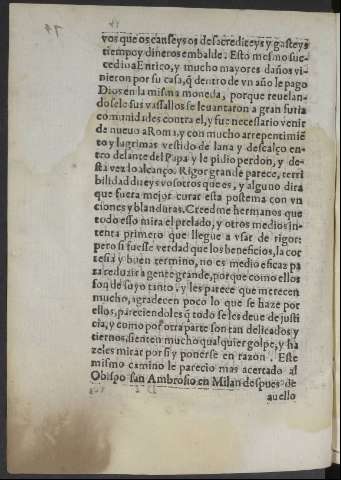 vos que os canseys os desacrediteys y gasteys
tiempo y dineros embalde. Esto mesmo suc-
cedio a Enrico, y mucho mayores daños vi-
nieron por su casa, q̃ dentro de vn año le pago
Dios en la misma moneda, porque reuelan-
doselo sus vassallos se leuantaron a gran furia
comunidades contra el, y fue necessario venir
de nueuo a Roma, y con mucho arrepentimiẽ
to y lagrimas vestido de lana y descalço en-
tro delante del Papa y le pidio perdon, y de-
sta vez lo alcanço. Rigor grande parece, terri
bilidad direys vosotros que es, y alguno dira
que fuera mejor curar esta postema con vn
ciones y blanduras. Creedme hermanos que
todo esso mira el prelado, y otros medios in-
tenta primero que llegue a vsar de rigor:
pero si fuesse verdad que los beneficios, la cor
tesia y buen termino, no es medio eficaz pa
ra reduzir a gente grande, porque como ellos
son de suyo tanto, y les parece que merecen
mucho, agradecen poco lo que se haze por
ellos, pareciendoles q̃ todo se les deue de justi
cia, y como por otra parte son tan delicados y
tiernos, sienten mucho qualquier golpe, y ha
zeles mirar por si y ponerse en razon. Este
mismo camino le parecio mas acertado al
Obispo san Ambrosio en Milan despues de
auello